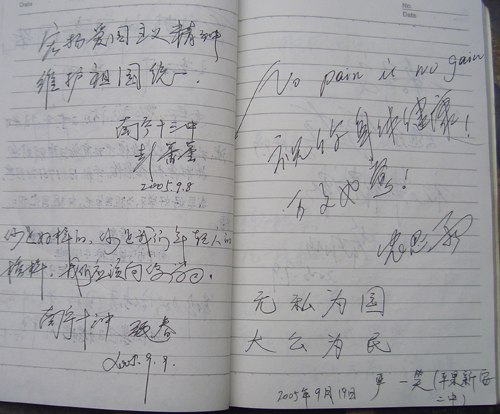 Date
宏扬爱国主义精神
维护祖国统一.
南宁十三中
彭
2005.9.8
你是好样的,你是我们年轻人的
榜样,我们应该向你学习.
南宁十三中
2005.9.9.
No.
Date
No pain is no gain
祝你身体健康!
万文如意!
无私为国
大公为民
2005年9月19日 一笑(平果新安
二中)